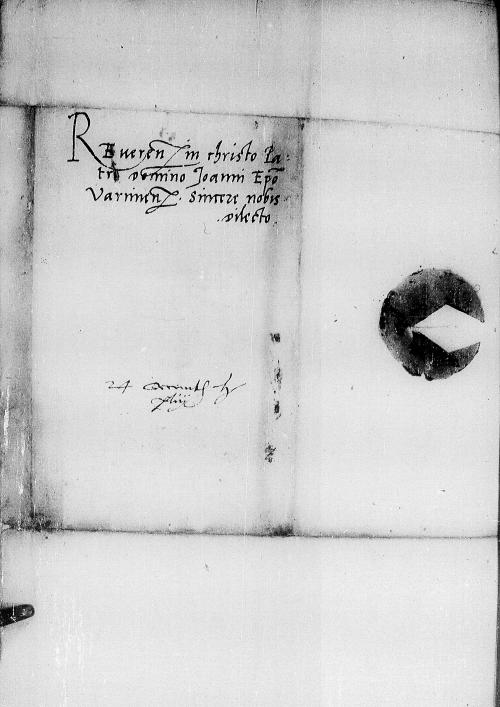 Reveren in christo Pa-
tri domino Joanni Epo
Varmien. Sincere nobis
dilecto.
24